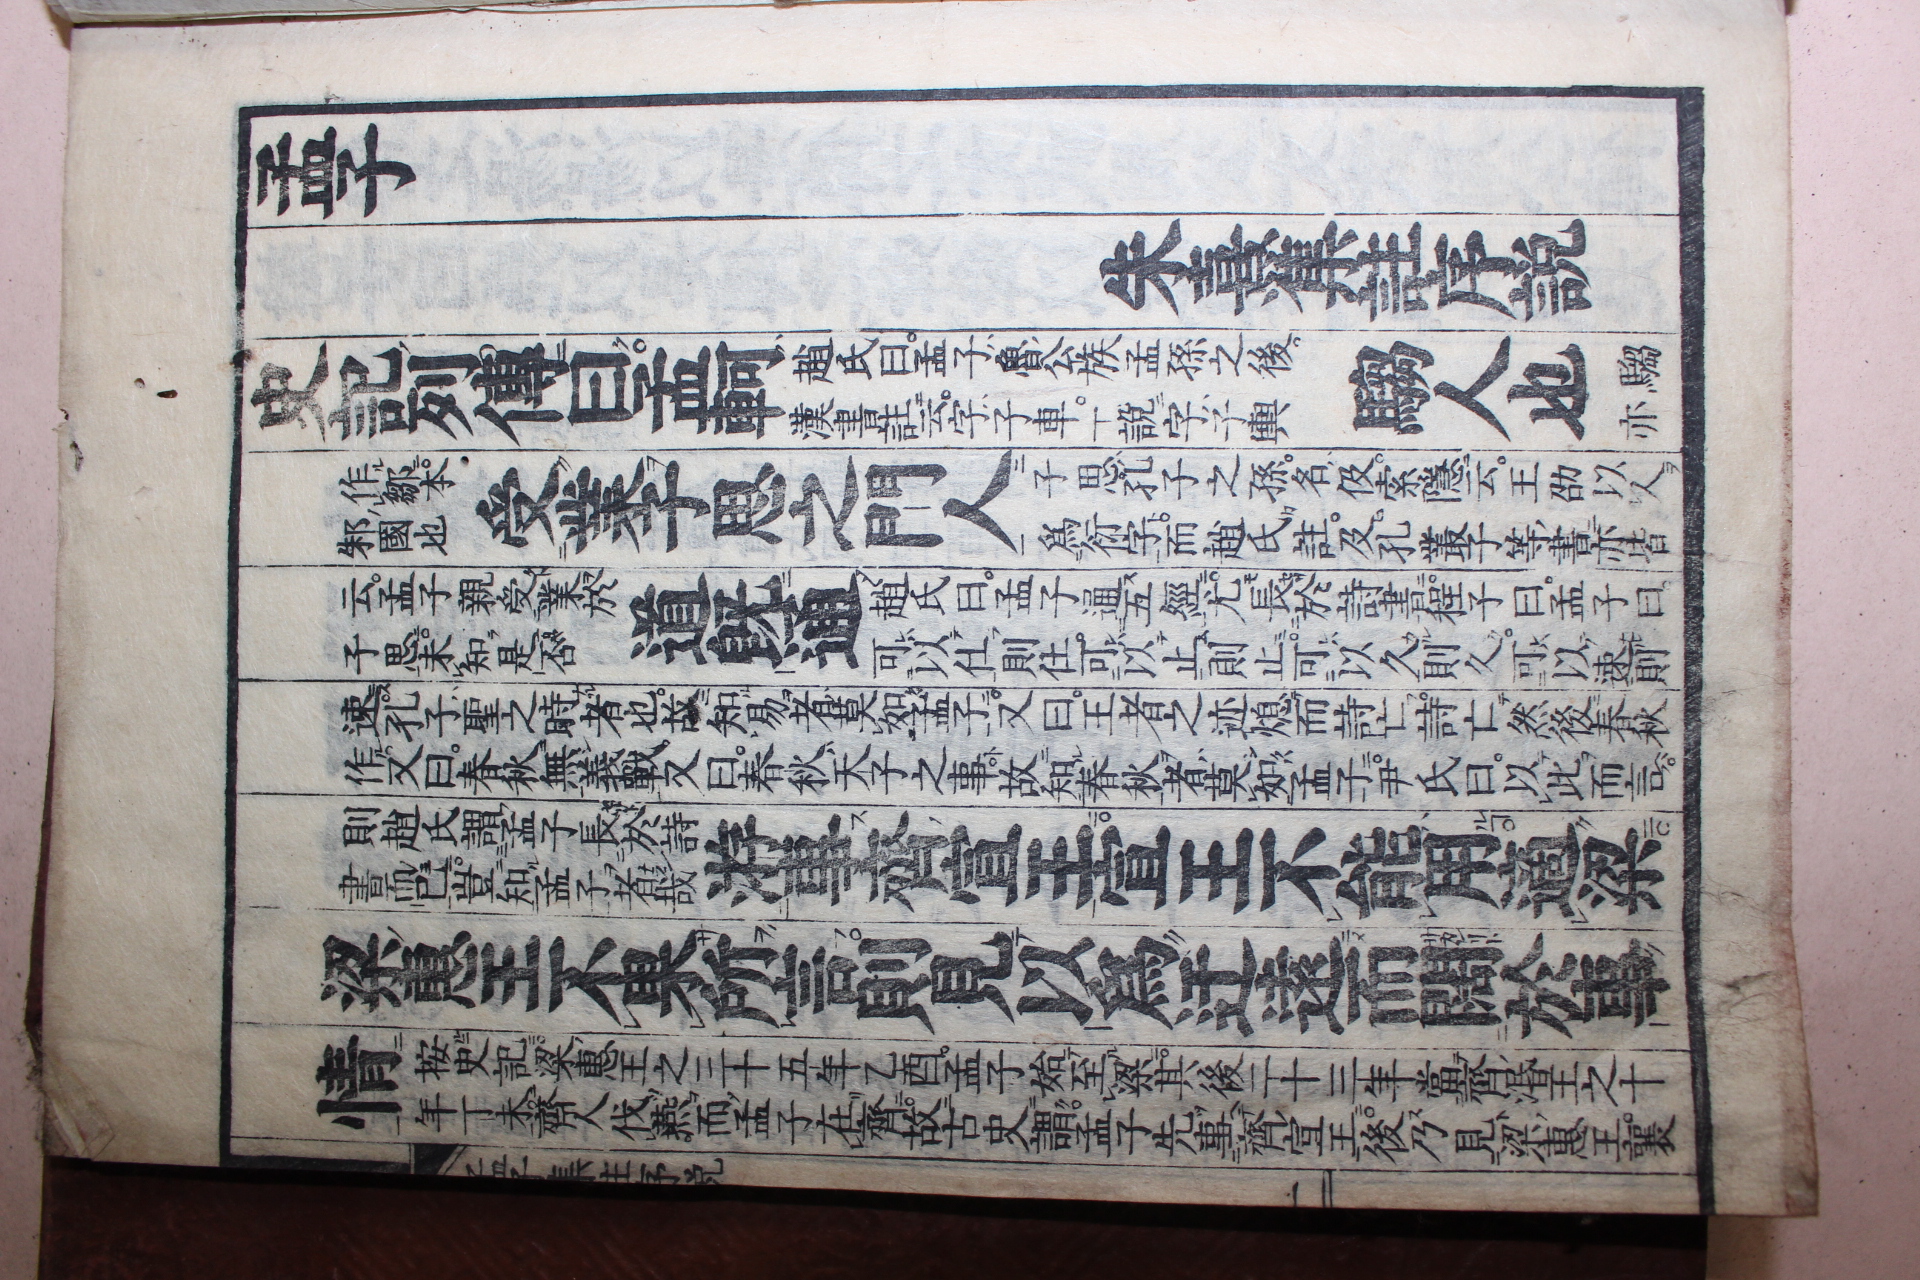 孟子
朱熹集註序說
史記列傳曰孟軻
趙氏曰孟子魯公族孟孫之後
漢書註云字子車一說字子輿
騶人也
騶亦
作鄒本
邾國也
受業子思之門人
子思孔子之孫名伋索隱云王劭以人
爲衍字而趙氏註及孔叢子等書亦皆
云孟子親受業於
子思未知是否
道既通
趙氏曰孟子通五經尤長於詩書程子曰孟子曰
可以仕則仕可以止則止可以久則久可以速則
速孔子聖之時者也故知易者莫如孟子又曰王者之迹熄而詩亡詩亡然後春秋
作又曰春秋無義戰又曰春秋天子之事故知春秋者莫如孟子尹氏曰以此而言
則趙氏謂孟子長於詩
書而已豈知孟子者哉
游事齊宣王宣王不能用適梁
梁惠王不果所言則見以爲迂遠而闊於事
情
按史記梁惠王之三十五年乙酉孟子始至梁其後二十三年當齊湣王之十
年丁未齊人伐燕而孟子在齊故古史謂孟子先事齊宣王後乃見梁惠王襄
孟子集註序說
一